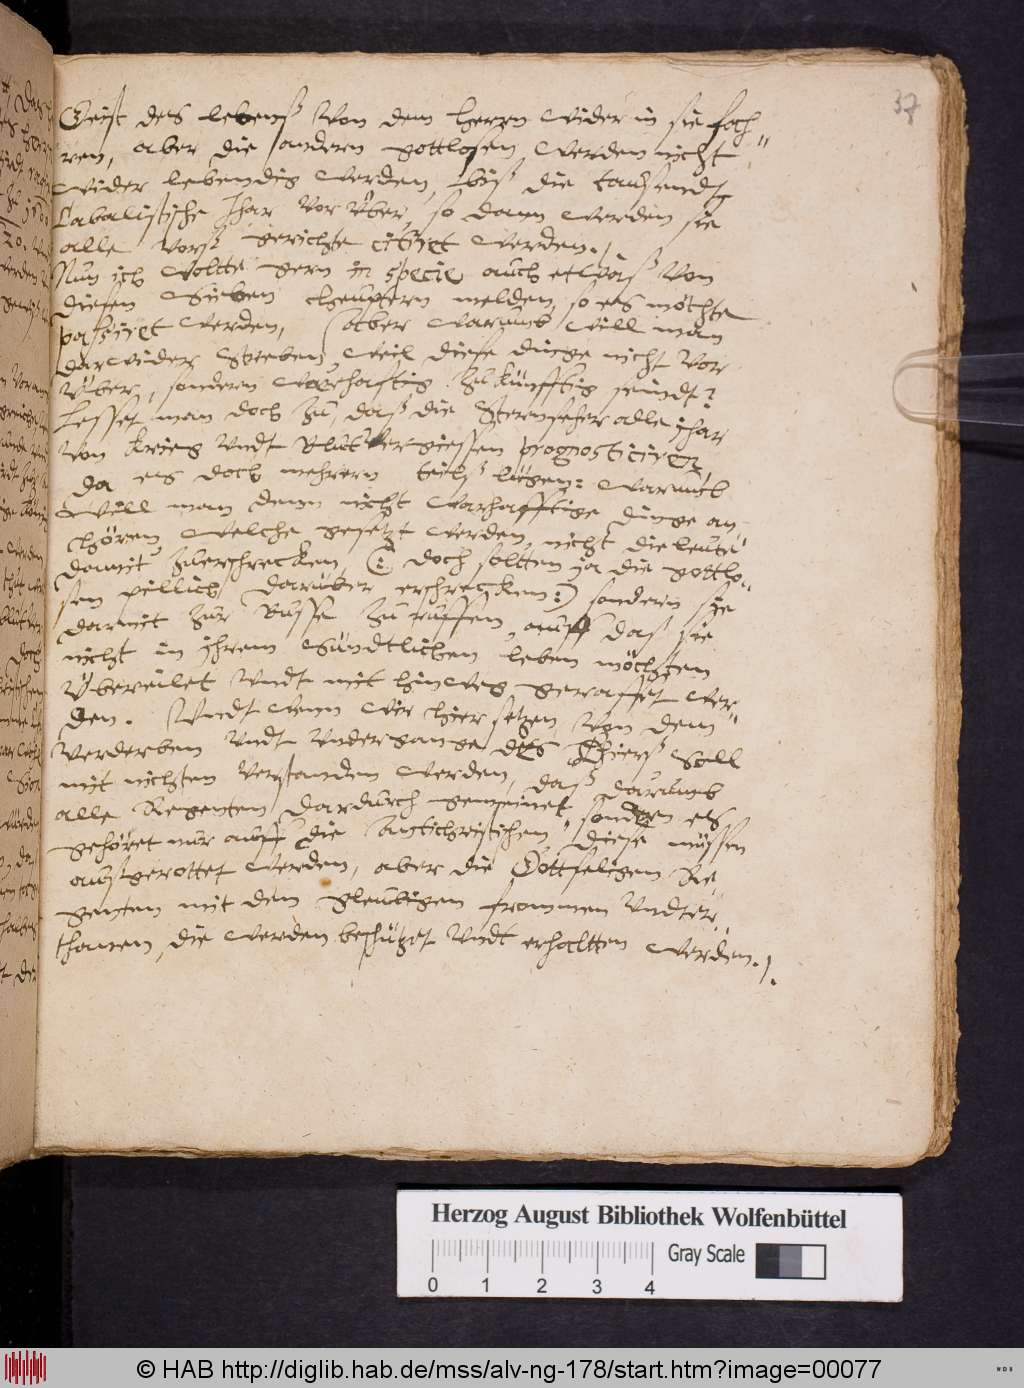 37
Geist des lebenß Von dem herrn wider in sie fah„
ren, aber die andern gottlosen werden nicht
wider lebendig werden, biß die tausendt
Cabalistische Jhar vor vber, so dann werden sie
alle vorß gerichte citirt werden./
Nun ich woltte gern in specie auch etwaß von
diesen Sieben heuptern melden, so es möchte
passirt werden, aber warumb will man
darwider streben, weil diese dinge nicht vor
vber, sondern warhafftig zukünfftig seindt?
lesset man doch zu, daß die Sternseher alle jhar
von krieg vndt Blutvergiessen prognosticiren,
da es doch mehrern teilß lügen: warumb
will man denn nicht warhafftige dinge an„
hören, welche gesetzt werden, nicht die leute
damit zuerschrecken, (: doch soltten ja die gottlo„
sen pillich darüber erschrecken:) sondern sie
darmit zur Busse zu ruffen, auff das sie
nicht in jhrem Sündtlichen leben möchten
vbereilet vndt mit hinweg geraffet wer„
den. Vndt wenn wir hier setzen, von dem
verderben vndt vndergange des Thierß Soll
mit nichten verstanden werden, daß darumb
alle Regenten dardurch gemeinet, sondern es
gehöret nur auff die Antichristischen, diese müssen
außgerottet werden, aber die Gottseligen Re„
genten mit den gleubigen frommen vndter„
thanen, die werden beschützet vndt erhaltten werden./.
Herzog August Bibliothek Wolfenbüttel
Gray Scale
0 1 2 3 4
© HAB http://diglib.hab.de/mss/alv-ng-178/start.htm?image=00077